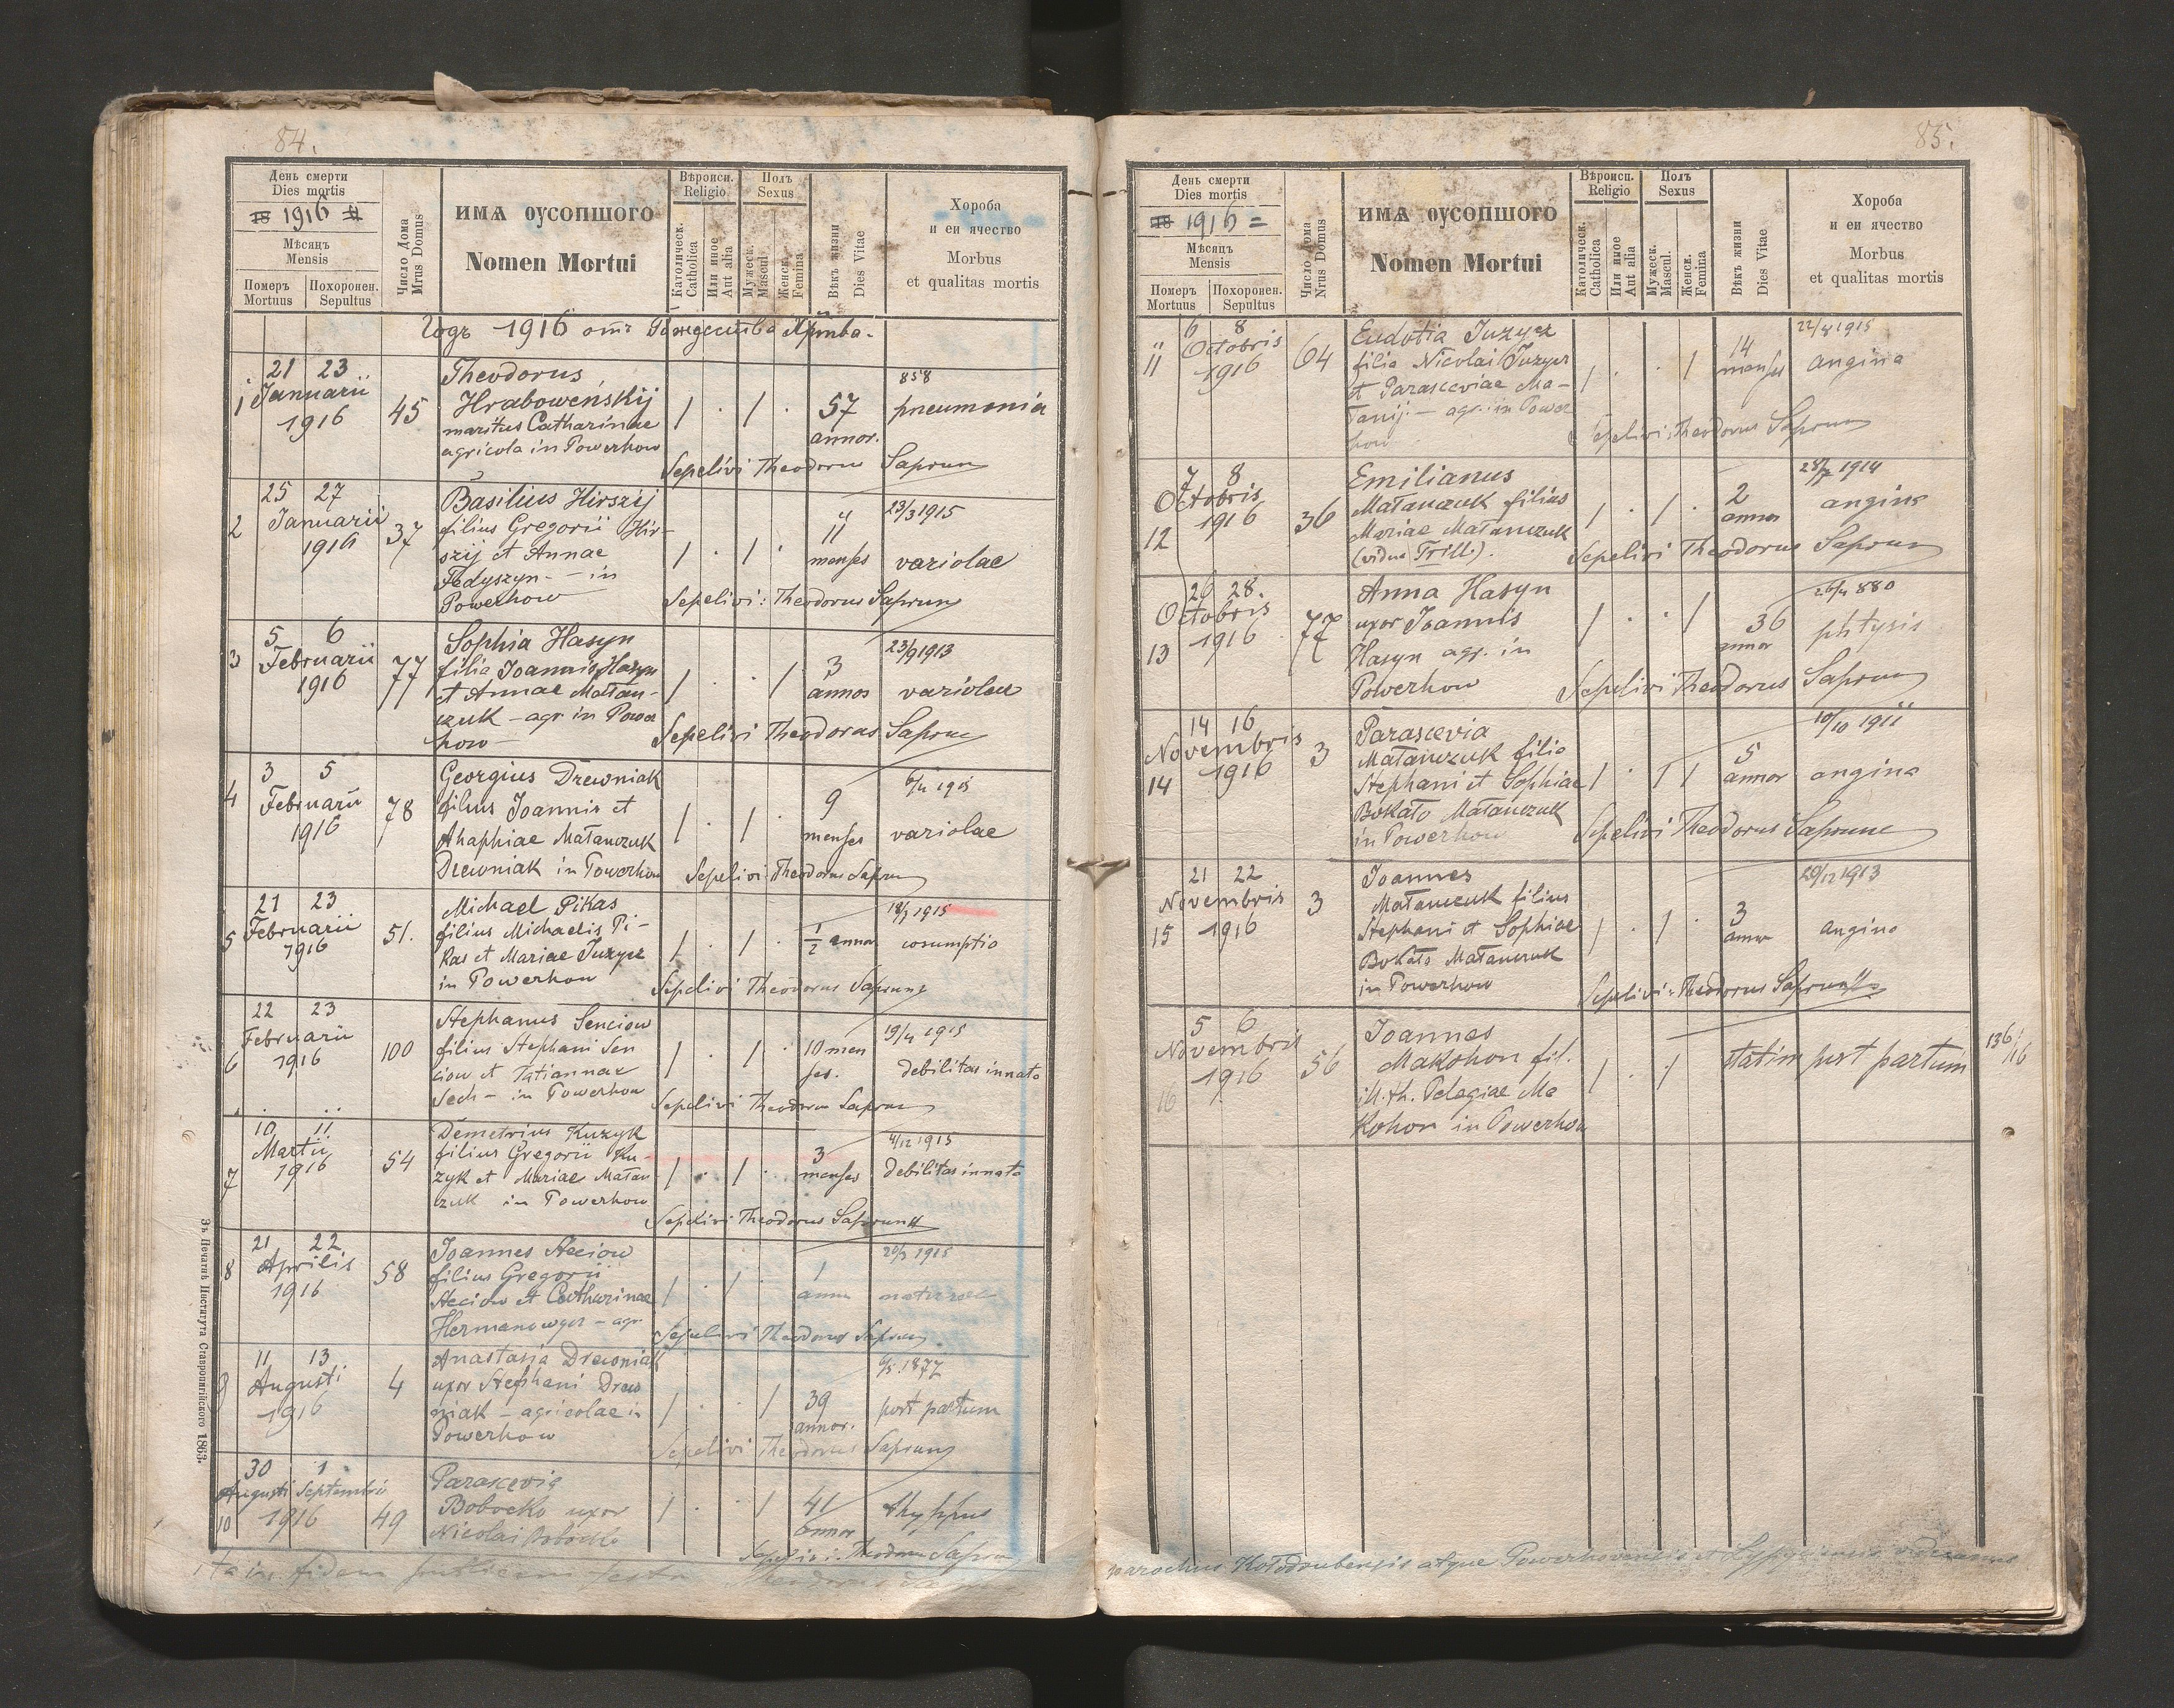 84.
День смерти
Dies mortis
18 1916
Мѣсяцъ
Mensis
Померъ
Mortuus
Похоронен.
Sepultus
Число Дома
Mrus Domus
ИМѦ ОУСОПШОГО
Nomen Mortui
Вѣроисп.
Religio
Католическ.
Catholica
Или иное
Aut alia
Полъ
Sexus
Мужеск.
Mascul.
Женск.
Femina
Вѣкъ жизни
Dies Vitae
Хороба
и еи ячество
Morbus
et qualitas mortis
Годъ 1916 отъ
1
21 23
Januarii
1916
45
Theodorus
Hrabowenśkij
maritus Catharinae
agricola in Powerhow
57
annor.
858
pneumonia
Sepelivi Theodorus Saprun
2
25 27
Januarii
1916
37
Basilius Hirszij
filius Gregorii Hir-
szij et Annae
Fedyszyn - in
Powerhow
11
menses
23/3 1915
variolae
Sepelivi: Theodorus Saprun
3
5 6
Februarii
1916
77
Sophia Hasyn
filia Joannis Hasyn
et Annae Matan-
czuk - agr in Power
how
3
annos
23/9 1913
variolae
Sepelivi Theodorus Saprun
4
3 5
Februarii
1916
78
Georgius Drewniak
filius Joannis et
Ahaphiae Matanczuk
Drewniak in Powerhow
9
menses
variolae
Sepelivi: Theodorus Saprun
5
21 23
Februarii
1916
51.
Michael Pikas
filius Michaelis Pi-
kas et Mariae Juzycz
in Powerhow
1/2 annor
cosumptio
Sepelivi Theodorus Saprun
6
22 23
Februarii
1916
100
Stephanus Senciow
filius Stephani Sen
ciow et Tatiannae
Sech - in Powerhow
10 men
ses.
19/4 1915
debilitas innata
Sepelivi Theodorus Saprun
7
10 11
Martii
1916
54
Demetrius Kuzyk
filius Gregorii Ku-
zyk et Mariae Matan
czuk in Powerhow
3
menses
4/12 1915
debilitas innata
Sepelivi Theodorus Saprun
8
21 22
Aprilis
1916
58
Joannes Steciow
filius Gregorii
Steciow et Catharinae
Hermanowycz - agr
1
20/3 1915
Sepelivi Theodorus Saprun
9
11 13
Augusti
1916
4
Anastasia Drewniak
uxor Stephani Drew
niak - agricolae in
Powerhow
39
annor.
1877
post partum
Sepelivi Theodorus Saprun
10
30 1
Augusti Septembris
1916
49
Parascevia
Bobecko uxor
Nicolai Bobecko
41
annor
thyphus
Sepelivi: Theodorus Saprun
Ita in fidem
Зъ Печатнѣ Института Ставропигійского 1863.
85.
День смерти
Dies mortis
18 1916 =
Мѣсяцъ
Mensis
Померъ
Mortuus
Похоронен.
Sepultus
Число Дома
Nrus Domus
ИМѦ ОУСОПШОГО
Nomen Mortui
Вѣроисп.
Religio
Католическ.
Catholica
Или иное
Aut alia
Полъ
Sexus
Мужеск.
Mascul.
Женск.
Femina
Вѣкъ жизни
Dies Vitae
Хороба
и еи ячество
Morbus
et qualitas mortis
11
6 8
Octobris
1916
64
Eudotia Juzycz
filia Nicolai Juzycz
et Parasceviae Ma-
- agr. in Power
how
14
menses
22/8 1915
angina
Sepelivi: Theodorus Saprun
12
7 8
Octobris
1916
36
Emilianus
Matanczuk filius
Mariae Matanczuk
(vidua Trill.).
2
annor
28/7 1914
angina
Sepelivi Theodorus Saprun
13
26 28.
Octobris
1916
77
Anna Hasyn
uxor Joannis
Hasyn agr. in
Powerhow
36
annor
26/4 880
phtysis
Sepelivi Theodorus Saprun
14
14 16
Novembris
1916
3
Parascevia
Matanczuk filia
Stephani et Sophiae
Bokato Matanczuk
in Powerhow
5
annor
10/10 1911
angina
Sepelivi Theodorus Saprun
15
21 22
Novembris
1916
3
Joannes
Matanczuk filius
Stephani et Sophiae
Bokato Matanczuk
in Powerhow
3
annor
20/12 1913
angina
Sepelivi: Theodorus Saprun
16
5 6
Novembris
1916
56
Joannes
Makohon fil.
ill. th. Pelagiae Ma
kohon in Powerhow
statim post partum
136/16
parochus Kołodrubensis atque Powerhoviensis et